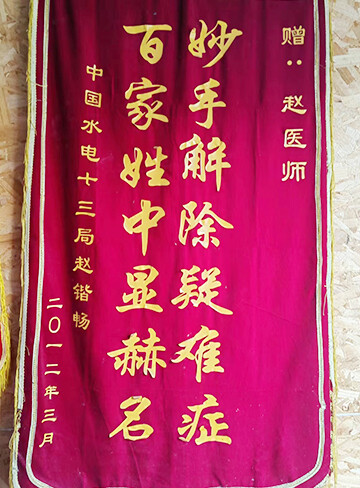 赠：赵医师
妙手解除疑难症
百家姓中显赫名
中国水电十三局赵锴畅
二〇一二年三月